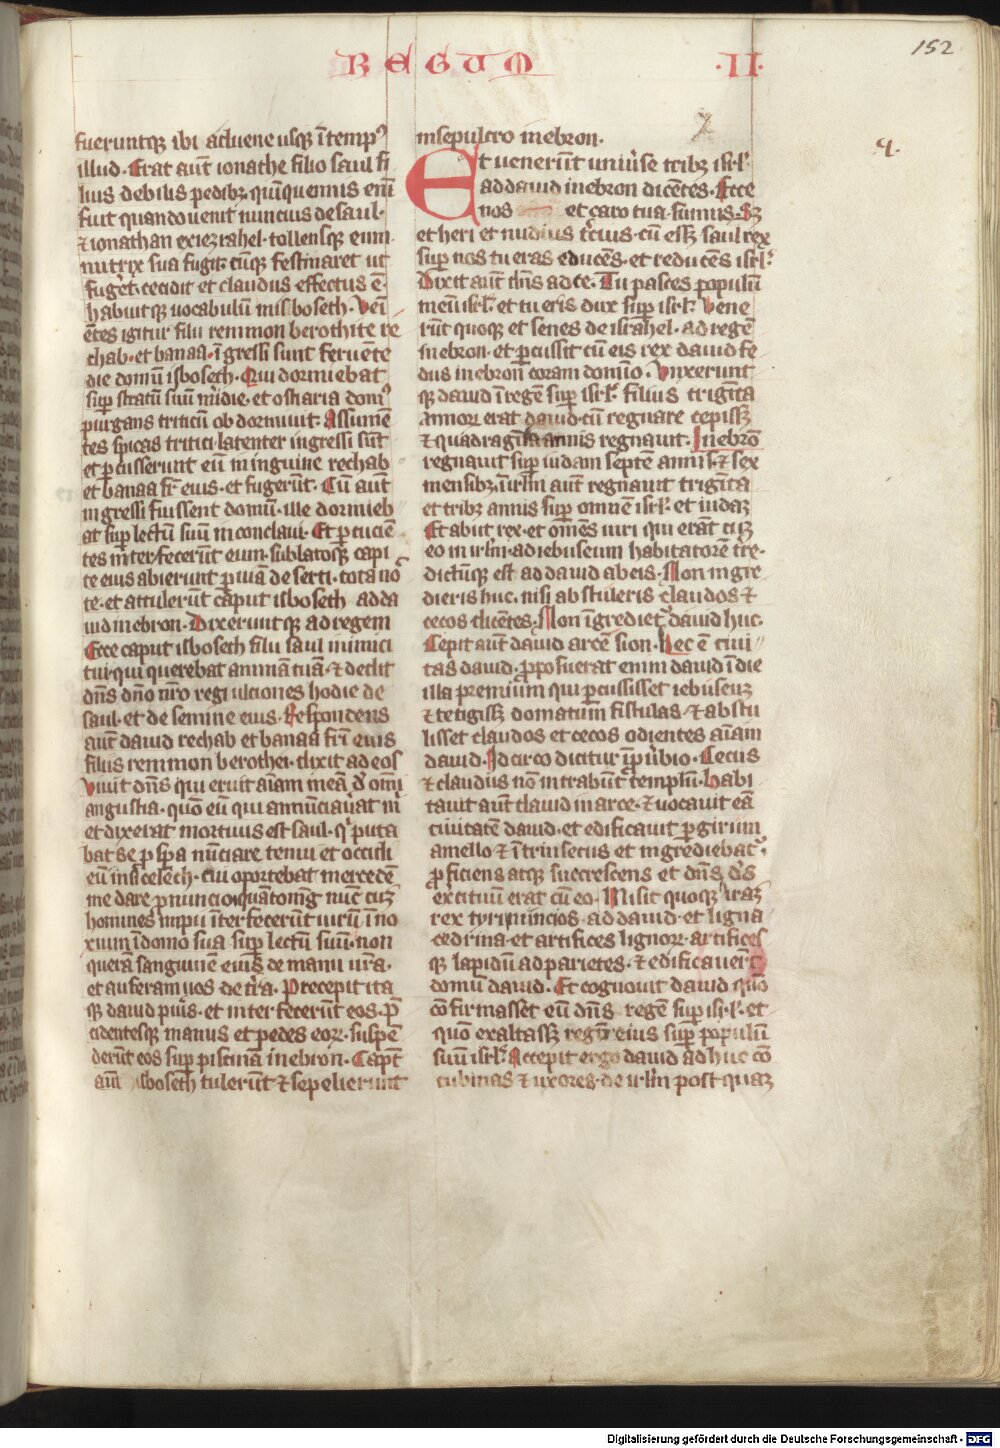 REGUM
·II·
152
fueruntqꝫ ibi aduene usqꝫ ī temp᷒
illud. Erat aūt ionathe filio saul fi
lius debilis pedibꝫ. quīquennis eni᷒
fuit quando uenit nuncius de saul.
⁊ ionathan ex iezrahel. tollensqꝫ eum
nutrix sua fugit. cūqꝫ festinaret ut
fuget. cecidit et claudus effectus ē.
habuitqꝫ uocabulū misboseth. Veni
entes igitur filii remmon berothite re
chab. et banaa. īgressi sunt feruēte
die domū isboseth. Qui dormiebat
sup stratū suū mͥdie. et ostiaria dom᷒
purgans triticū obdormiuit. Assumē
tes spicas tritici latenter ingressi sūt
et pcusserunt eū in inguine rechab
et banaa fr̄ eius. et fugerūt. Cū aūt
ingressi fuissent domū. ille dormieb
at sup lectū suū in conclaui. Et pcucie
tes interfecerūt eum. sublatoqꝫ capi
te eius abierunt p uiā deserti. tota no
te. et attulerūt caput isboseth ad da
uid in ebron. Dixeruntqꝫ ad regem
Ecce caput isboseth filii saul inimici
tui. qui querebat animā tuā. ⁊ dedit
dn̄s dn̄o nr̄o regi ulciones hodie de
saul. et de semine eius. Respondens
aūt dauid rechab et banaa fr̄i eius
filiis remmon berothei. dixit ad eos
Viuit dn̄s qui eruit aīam meā d̄ omī
angustia. quō eū qui annūciauat m̄
et dixerat mortuus est saul. qͥ puta
bat se pspa nūciare tenui et occidi
eū in sicelech. cui oportebat mercedē
me dare p nuncio. quātomḡ nūc cuꝫ
homines impii interfecerūt uirū īno
xium ī domo sua sup lectū suū. non
querā sanguinē eius de manu ur̄a.
et auferam uos de tr̄a. Precepit ita
qꝫ dauid puͥs. et interfecerūt eos. p̄
cidentesqꝫ manus et pedes eoꝝ. suspē
derūt eos sup piscinā in ebron. Capt
aūt isboseth tulerūt ⁊ sepelierunt
in sepulcro in ebron.
Et uenerūt uniuͥse tribꝫ isrl̄.
ad dauid in ebron dicētes. Ecce
nos et caro tua sumus. Sꝫ
et heri et nudius tͥcius. cū essꝫ saul rex
sup nos tu eras educēs. et reducēs isrl̄.
Dixit aūt dn̄s ad te. Tu pasces populū
meū isrl̄. et tu eris dux sup isrl̄. Vene
rūt quoqꝫ et senes de israhel. ad regē
in ebron. et pcussit cū eis rex dauid fe
dus in ebron coram domīo. Vnxerunt
qꝫ dauid ī regē sup isrl̄. filius trigīta
annoꝝ erat dauid. cū regnare cepissꝫ
⁊ quadragīta annis regnauit. In ebrō
regnauit sup iudam septē annis. ⁊ sex
mensibꝫ. ī irl̄m aūt regnauit trigīta
et tribꝫ annis sup omnē isrl̄. et iudaꝫ
Et abiit rex. et omēs uiri qui erāt cuꝫ
eo in irl̄m. ad iebuseum habitatorē tr̄e.
dictūqꝫ est ad dauid ab eis. Non ingre
dieris huc. nisi abstuleris claudos ⁊
cecos dicētes. Non īgrediet᷒ dauid huc.
Cepit aūt dauid arcē sion. Hec ē ciui
tas dauid. proposuerat enim dauid ī die
illa premium qui pcussisset iebuseuꝫ
⁊ tetigissꝫ domatum fistulas. ⁊ abstu
lisset claudos et cecos odientes aīam
dauid. Idcirco dicitur ī puͥbio. Cecus
⁊ claudus nō intrabūt templū. Habi
tauit aūt dauid in arce. ⁊ uocauit eā
ciuitatē dauid. et edificauit p girum
a mello ⁊ ītrinsecus et ingrediebat᷒.
proficiens atqꝫ succrescens et dn̄s d̄s
exͥcituū erat cū eo. Misit quoqꝫ iraꝫ
rex tyri nuncios ad dauid. et ligna
cedrina. et artifices lignoꝝ. artifices
qꝫ lapidū ad parietes. ⁊ edificauerūt
domū dauid. Et cognouit dauid quō
cōfirmasset eū dn̄s regē sup isrl̄. et
quō exaltassꝫ regnū eius sup populū
suū isrl̄. Accepit ergo dauid adhuc cō
cubinas ⁊ uxores. de irl̄m postquaꝫ
Digitalisierung gefördert durch die Deutsche Forschungsgemeinschaft - DFG